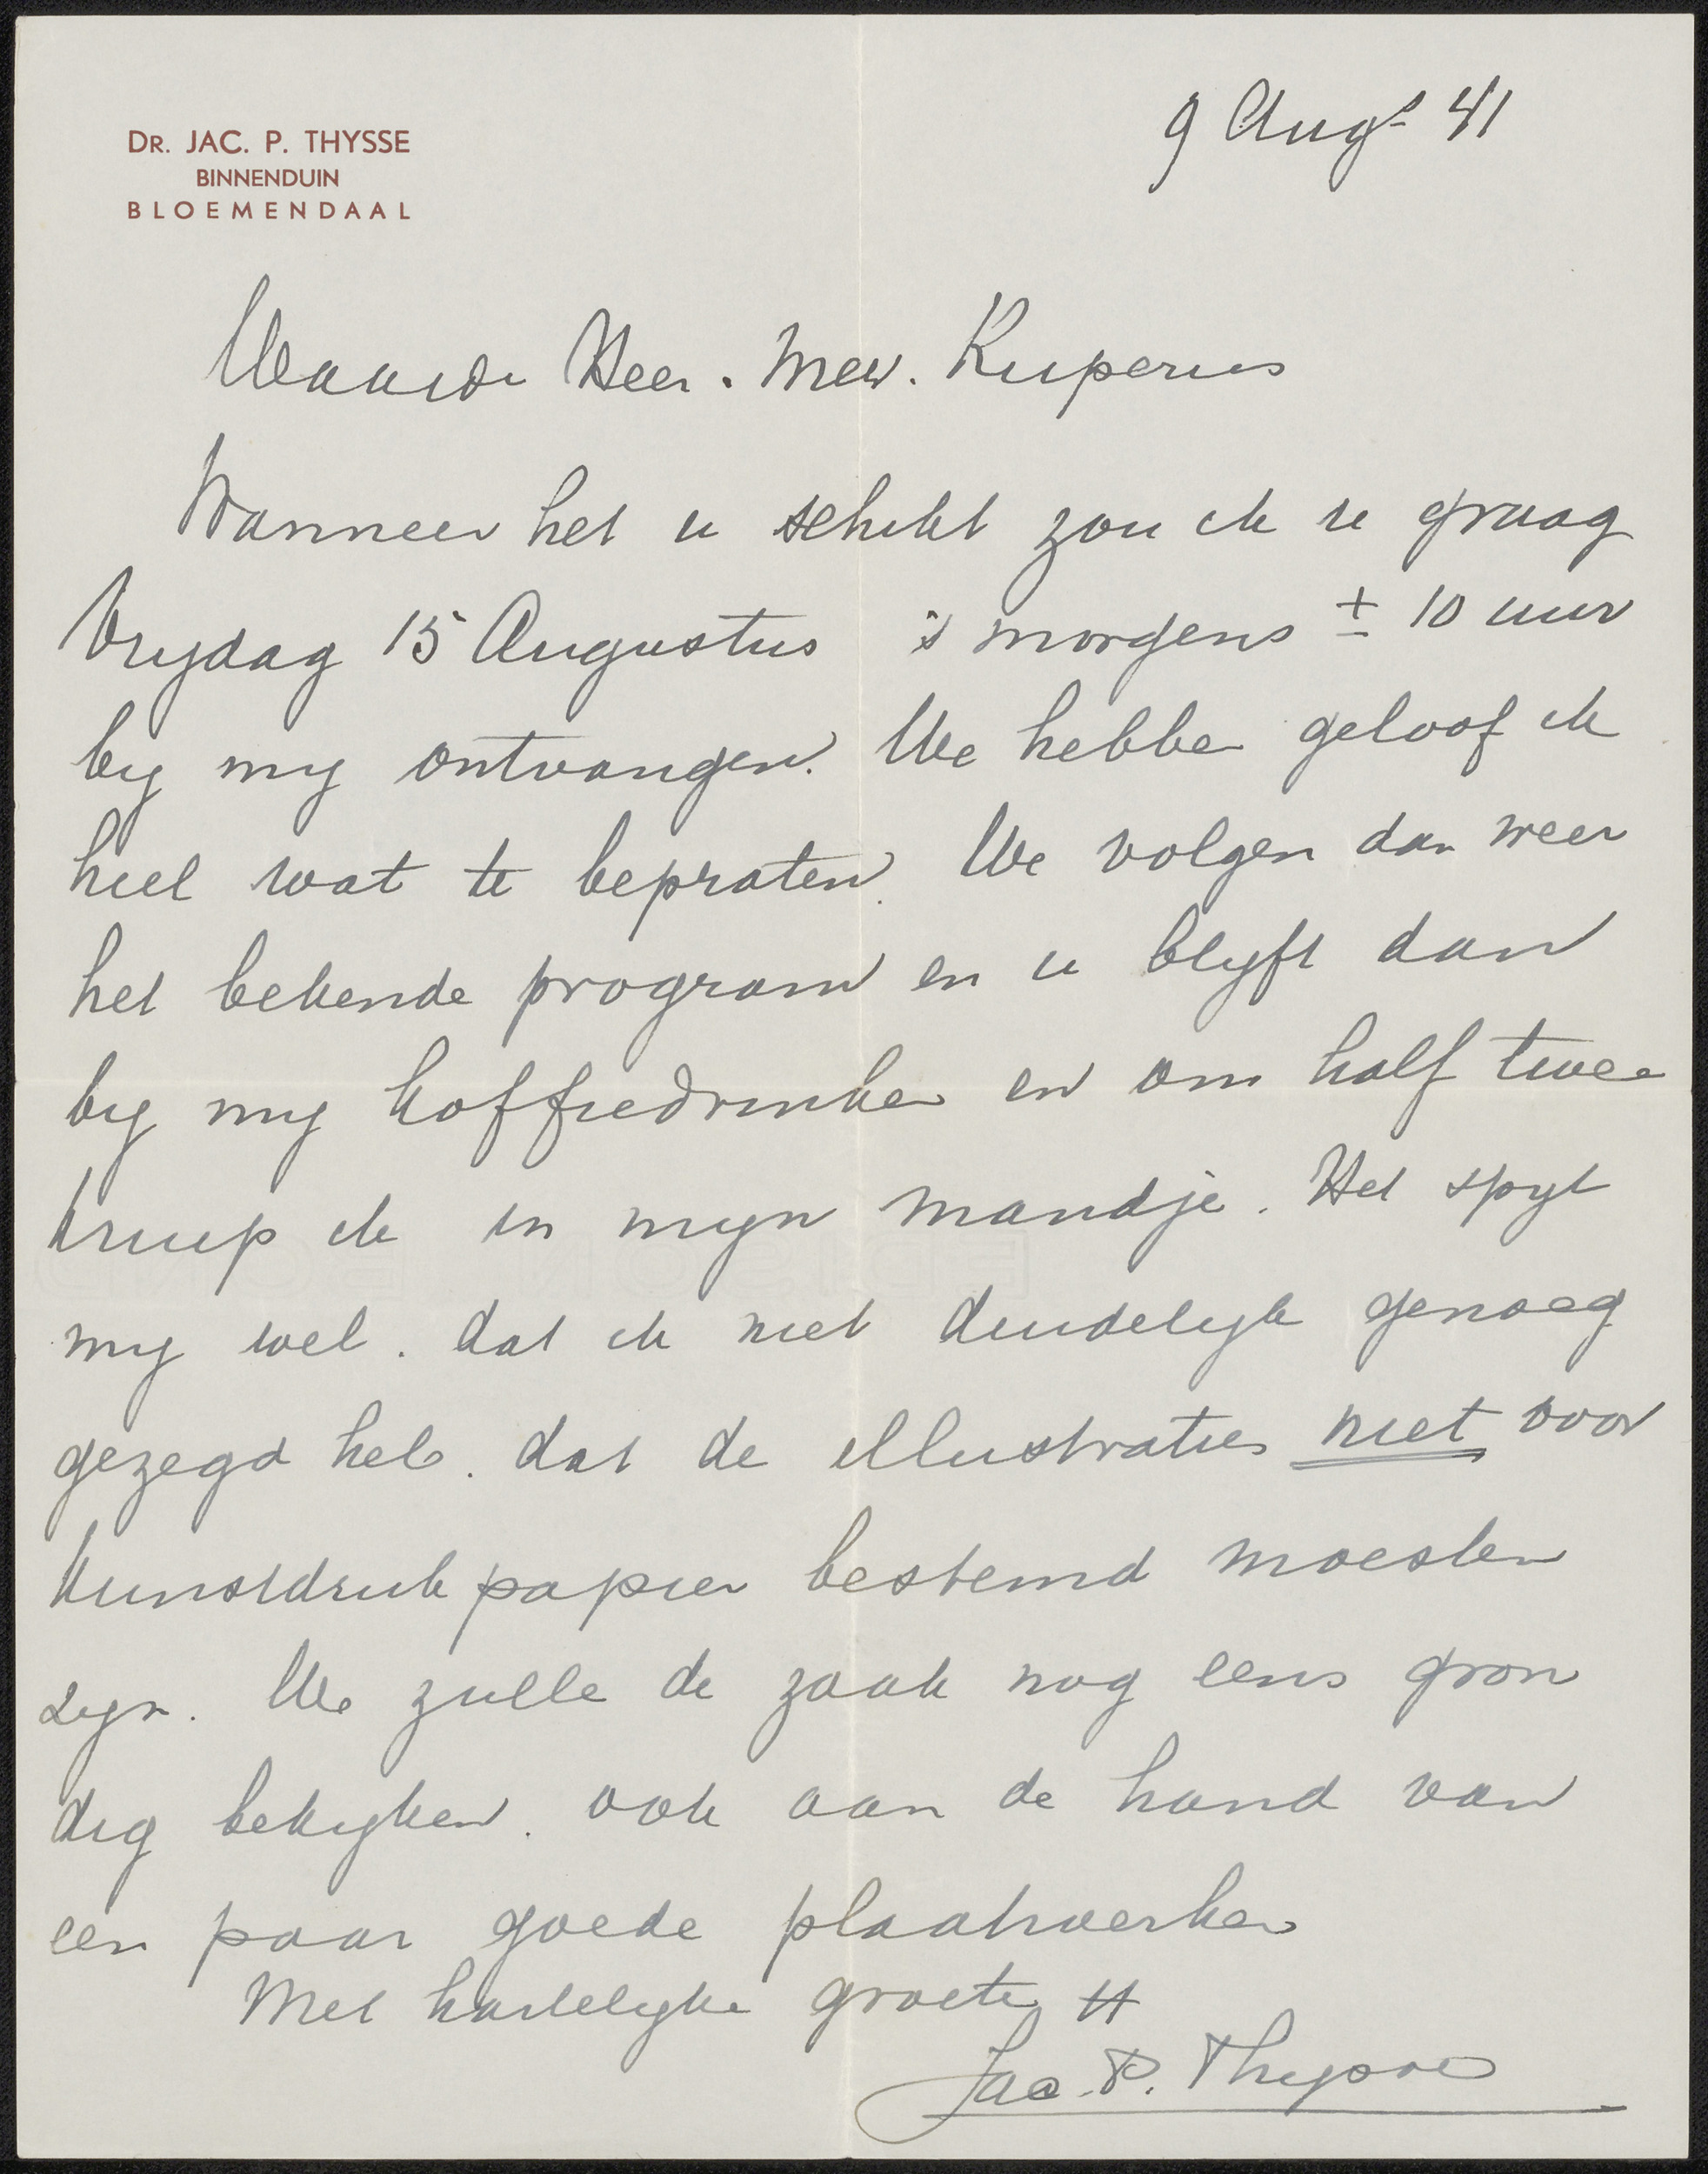 9 Augs 41
DR. JAC. P. THYSSE
BINNENDUIN
BLOEMENDAAL
Waarde Heer. Mew. Kuperus
Wanneer het u schikt zou ik u graag
Vrydag 15 Augustus 's morgens ± 10 uur
by my ontvangen. We hebben geloof ik
heel wat te bepraten. We volgen dan weer
het bekende program en u blyft dan
by my koffiedrinken en om half twee
kruip ik in myn mandje. Het spyt
my wel. dat ik niet duidelyk genoeg
gezegd heb. dat de illustraties niet voor
kunstdruk papier bestemd moesten
zyn. We zulle de zaak nog eens gron
dig bekyken. ook aan de hand van
een paar goede plaatwerken
Met hartelyke groeten tt
Jac. P. Thysse